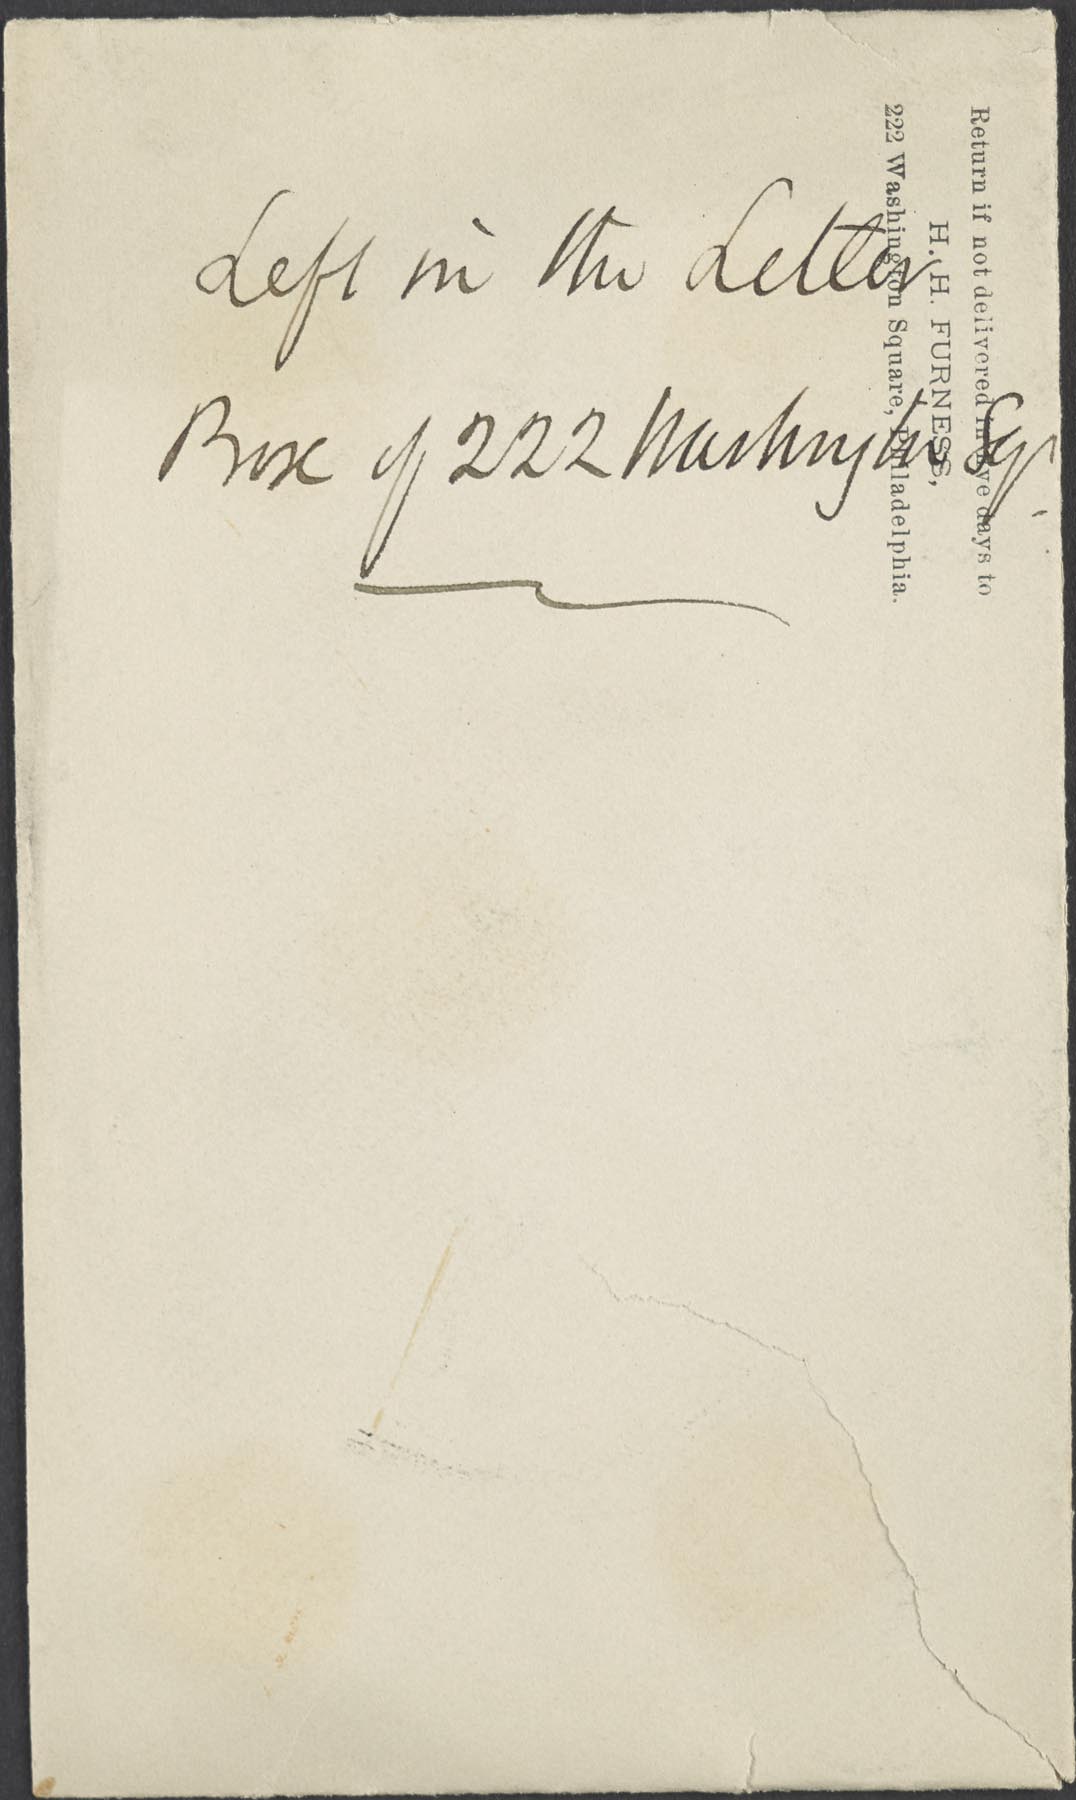 Return if not delivered in five days to
H. H. FURNESS,
222 Washington Square, Philadelphia.
Left in the Letter
Box of 222 Washington Sq.